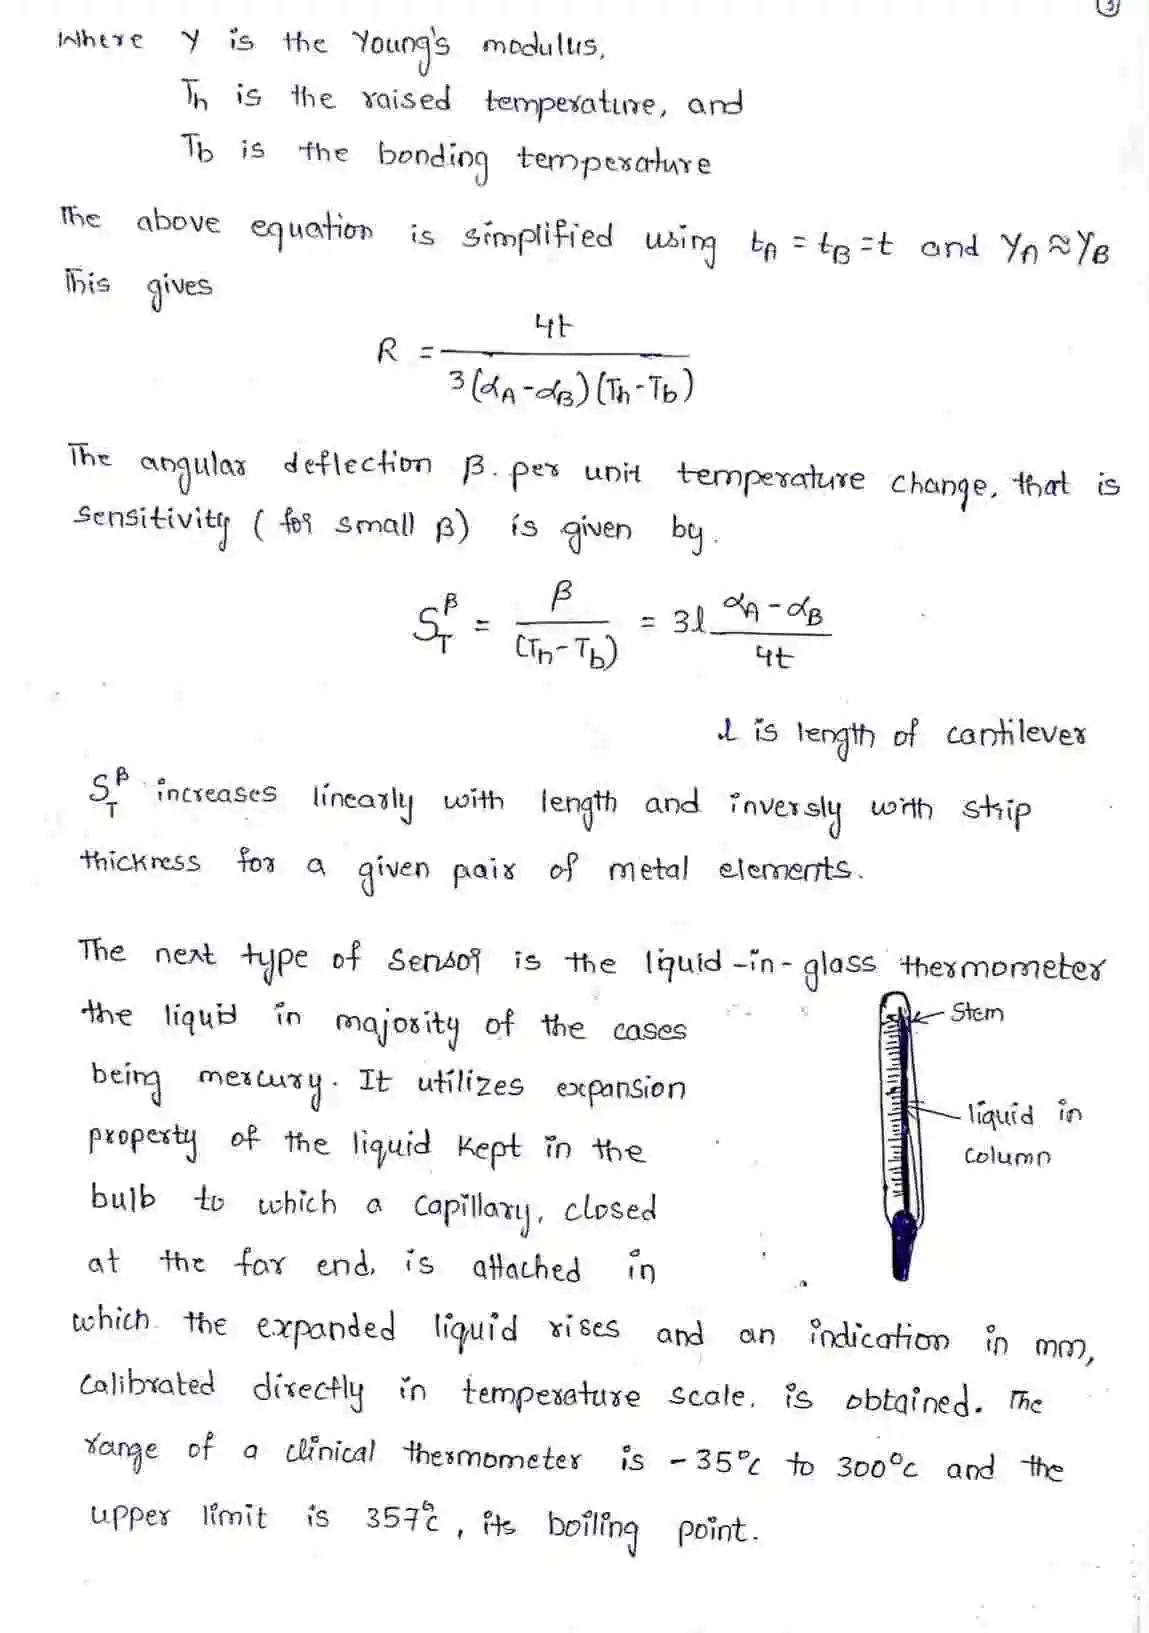 3
Where Y is the Young's modulus,
Th is the raised temperature, and
Tb is the bonding temperature
The above equation is simplified using tA = tB = t and YA ≈ YB
This gives
R = 4t / 3(αA - αB)(Th - Tb)
The angular deflection β. per unit temperature change, that is
sensitivity (for small β) is given by.
S_T^β = β / (Th - Tb) = 3l (αA - αB) / 4t
l is length of cantilever
S_T^β increases linearly with length and inversly with strip
thickness for a given pair of metal elements.
The next type of sensor is the liquid-in-glass thermometer
the liquid in majority of the cases
Stem
being mercury. It utilizes expansion
liquid in
column
property of the liquid kept in the
bulb to which a capillary, closed
at the far end, is attached in
which the expanded liquid rises and an indication in mm,
calibrated directly in temperature scale, is obtained. The
range of a clinical thermometer is -35°c to 300°c and the
upper limit is 357°c, its boiling point.